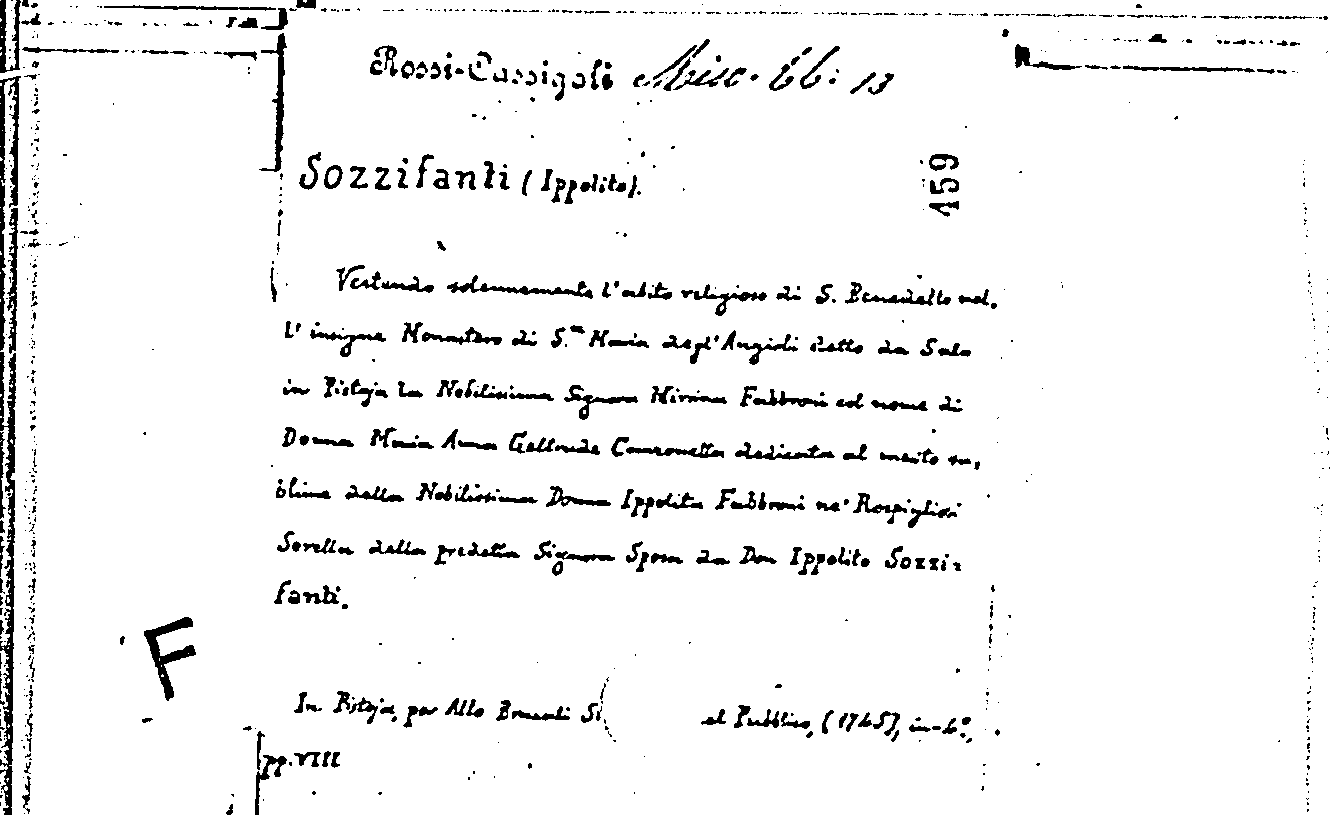 Rossi-Cassigoli Misc. 66: 13
159
Sozzifanti (Ippolito).
Vestendo solennemente l'abito religioso di S. Benedetto nel,
l'insigne Monastero di S.ta Maria degl'Angioli detto da Sala
in Pistoja la Nobilissima Signora Mirina Fabbroni col nome di
Donna Maria Anna Geltrude Canzonetta dedicata al merito su,
blime della Nobilissima Donna Ippolita Fabbroni ne' Rospigliosi
Sorella della predetta Signora Sposa da Don Ippolito Sozzi=
fanti.
F
In Pistoja, per Atto Bracali S el Pubblico, (1745), in-4°,
pp. VIII